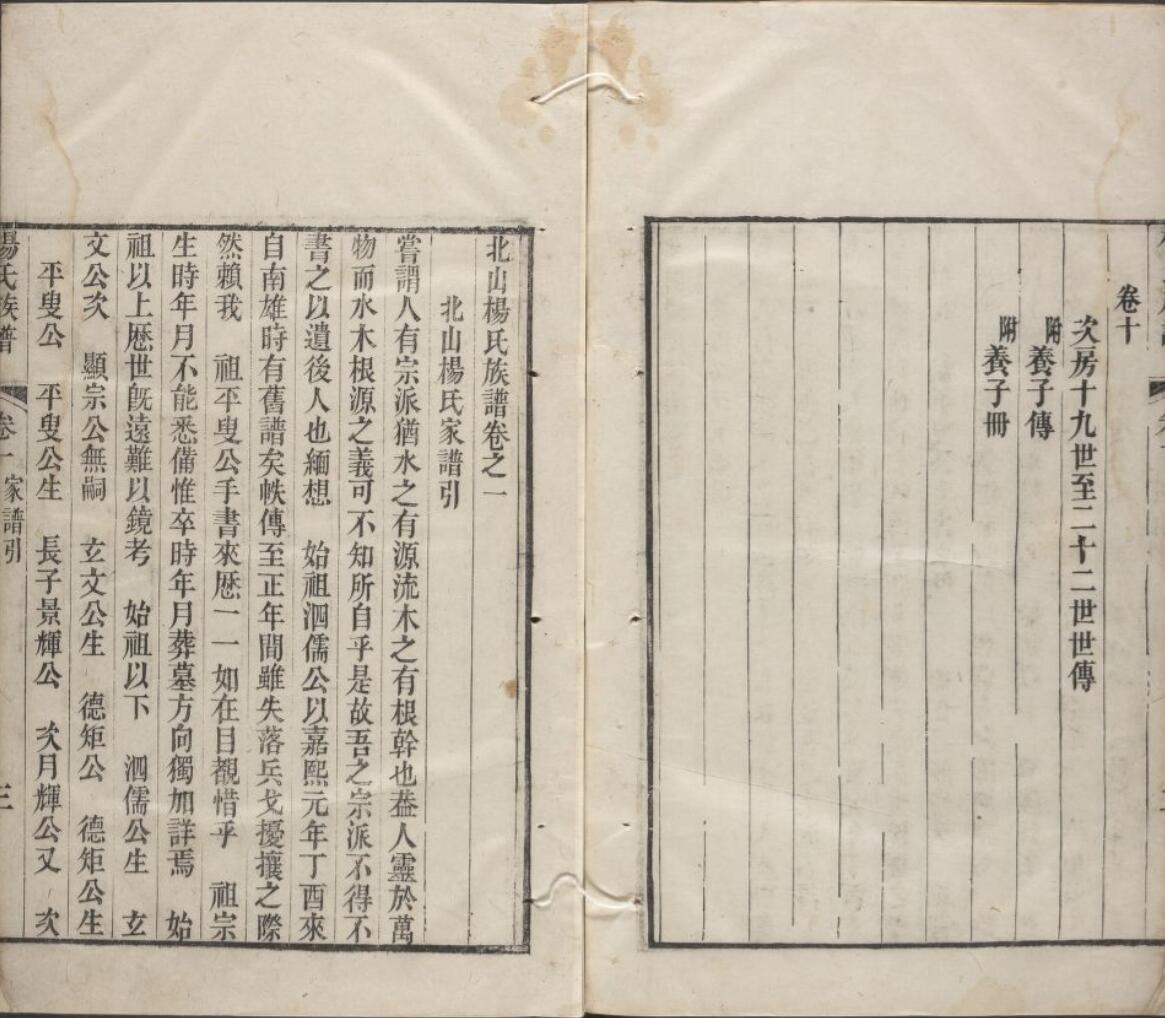 卷十
次房十九世至二十二世世傳
附養子傳
附養子冊
北山楊氏族譜卷之一
北山楊氏家譜引
嘗謂人有宗派猶水之有源流木之有根幹也葢人靈於萬
物而水木根源之義可不知所自乎是故吾之宗派不得不
書之以遺後人也緬想 始祖泗儒公以嘉熙元年丁酉來
自南雄時有舊譜矣帙傳至正年間雖失落兵戈擾攘之際
然賴我 祖平叟公手書來歷一一如在目覩惜乎 祖宗
生時年月不能悉備惟卒時年月葬墓方向獨加詳焉 始
祖以上歷世旣遠難以鏡考 始祖以下 泗儒公生 玄
文公次 顯宗公無嗣 玄文公生 德矩公 德矩公生
平叟公 平叟公生 長子景輝公 次月輝公又 次
楊氏族譜 卷一 家譜引 三